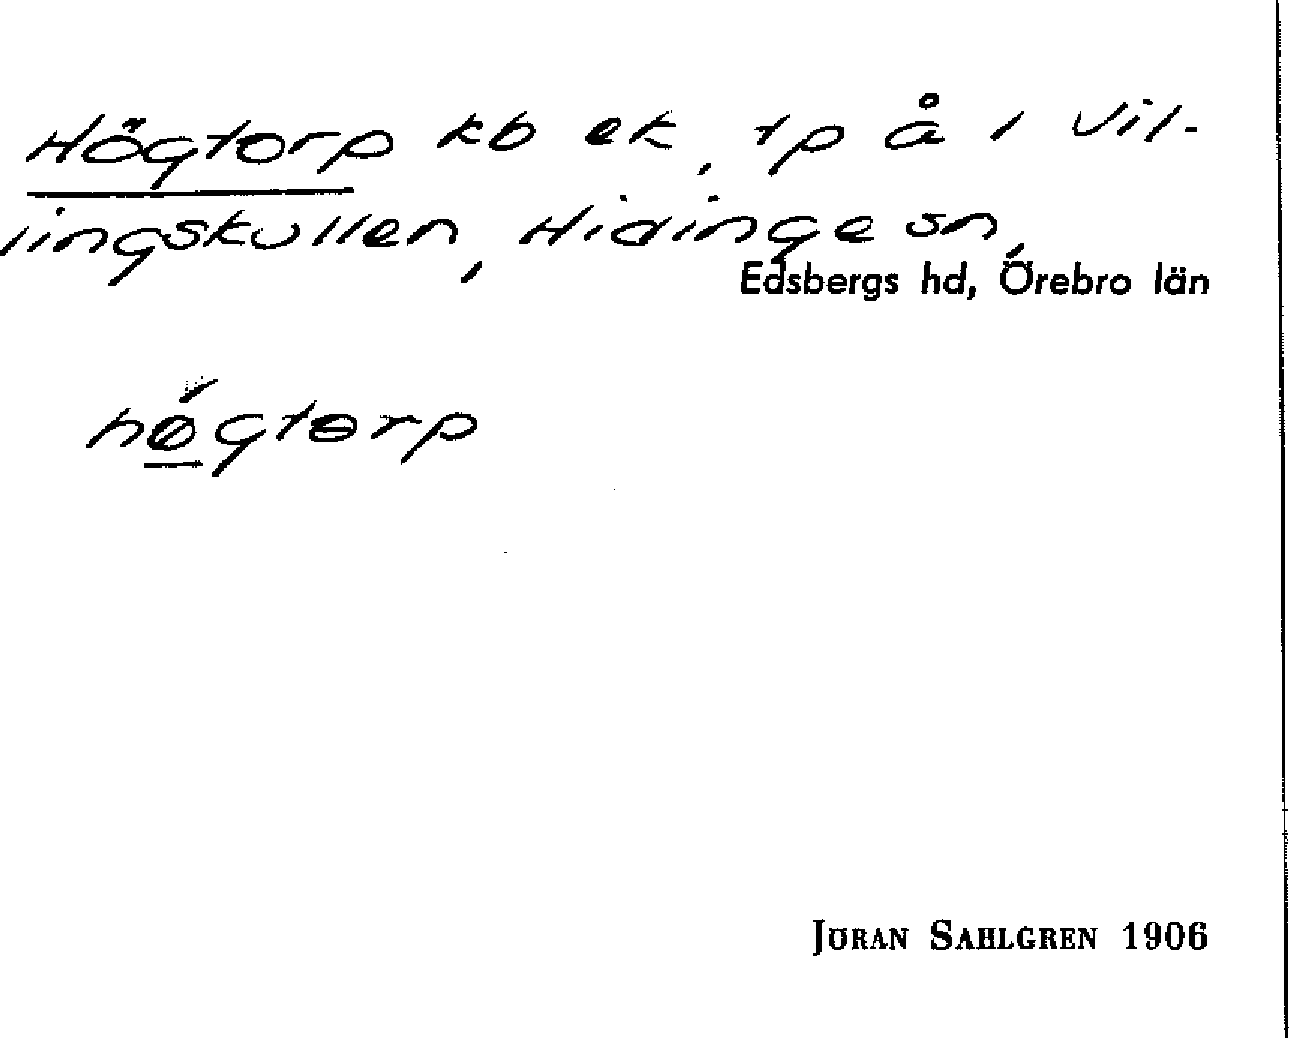 Högtorp kb ek, tp å 1 Vil-
lingskullen, Hidinge sn,
Edsbergs hd, Örebro län
hǿ̠gtɵrp
JÖRAN SAHLGREN 1906